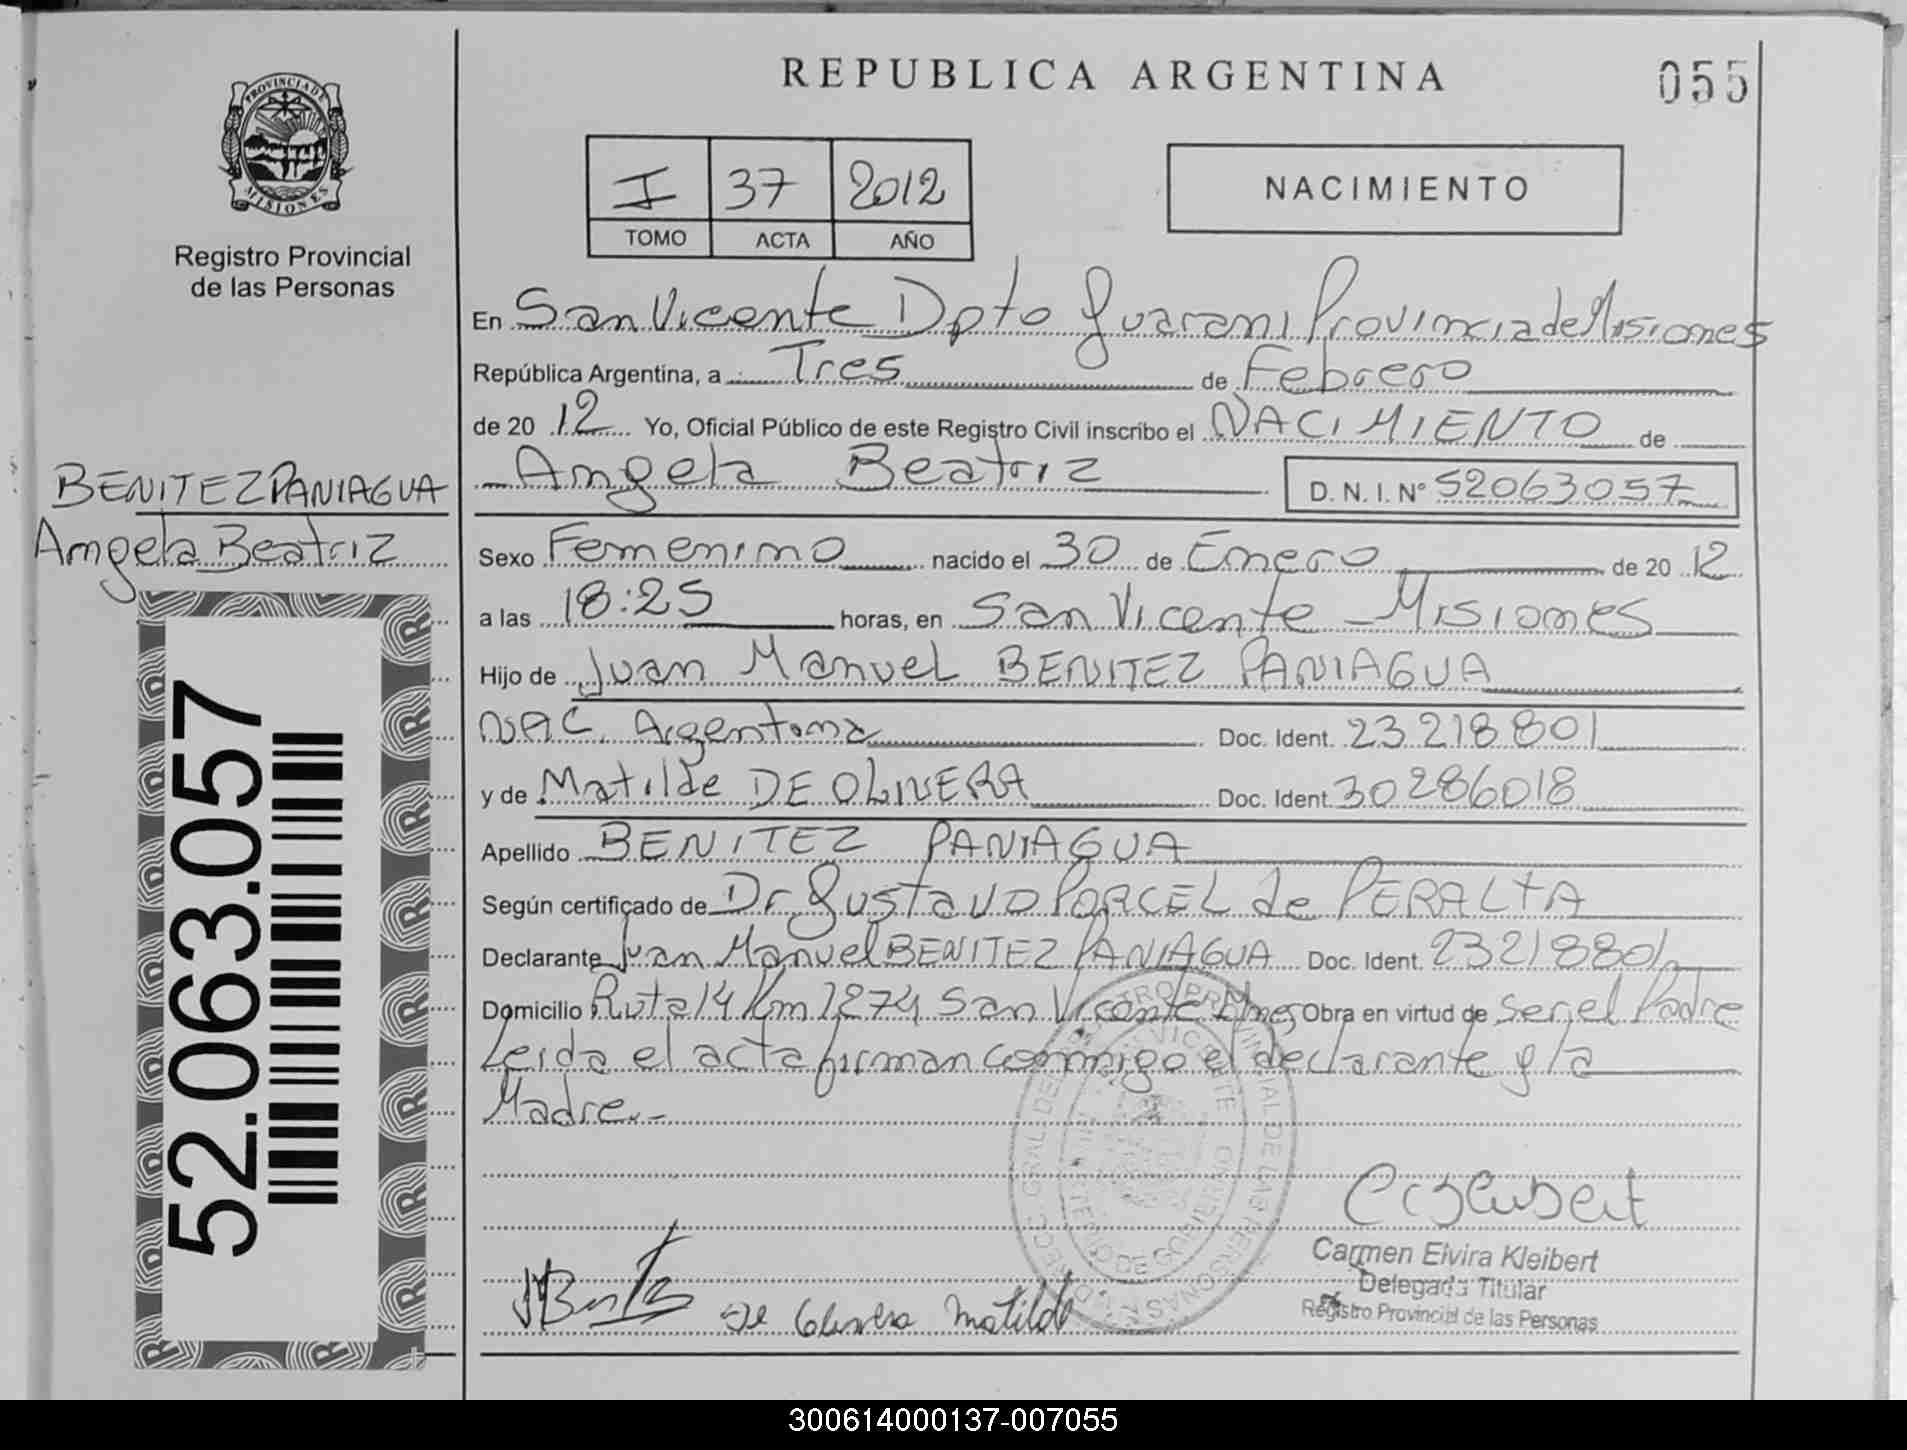 REPUBLICA ARGENTINA
055
PROVINCIA DE MISIONES
Registro Provincial
de las Personas
I 37 2012
TOMO ACTA AÑO
NACIMIENTO
En San Vicente Dpto Guarani Provincia de Misiones
República Argentina, a Tres de Febrero
de 20 12 Yo, Oficial Público de este Registro Civil inscribo el NACIMIENTO de
Angela Beatriz D. N. I. Nº 52063057
BENITEZ PANIAGUA
Angela Beatriz
Sexo Femenino nacido el 30 de Enero de 20 12
a las 18:25 horas, en San Vicente - Misiones
Hijo de Juan Manuel BENITEZ PANIAGUA
NAC. Argentina Doc. Ident. 23.218.801
y de Matilde DE OLIVERA Doc. Ident. 30286018
Apellido BENITEZ PANIAGUA
Según certificado de Dr. Gustavo PORCEL de PERALTA
Declarante Juan Manuel BENITEZ PANIAGUA Doc. Ident. 23218801
Domicilio Ruta 14 Km 1274 San Vicente Mnes Obra en virtud de ser el Padre
Leida el acta firman conmigo el declarante y la
Madre.-
52.063.057
De Olivera Matilde
Carmen Elvira Kleibert
Delegada Titular
Registro Provincial de las Personas
300614000137-007055